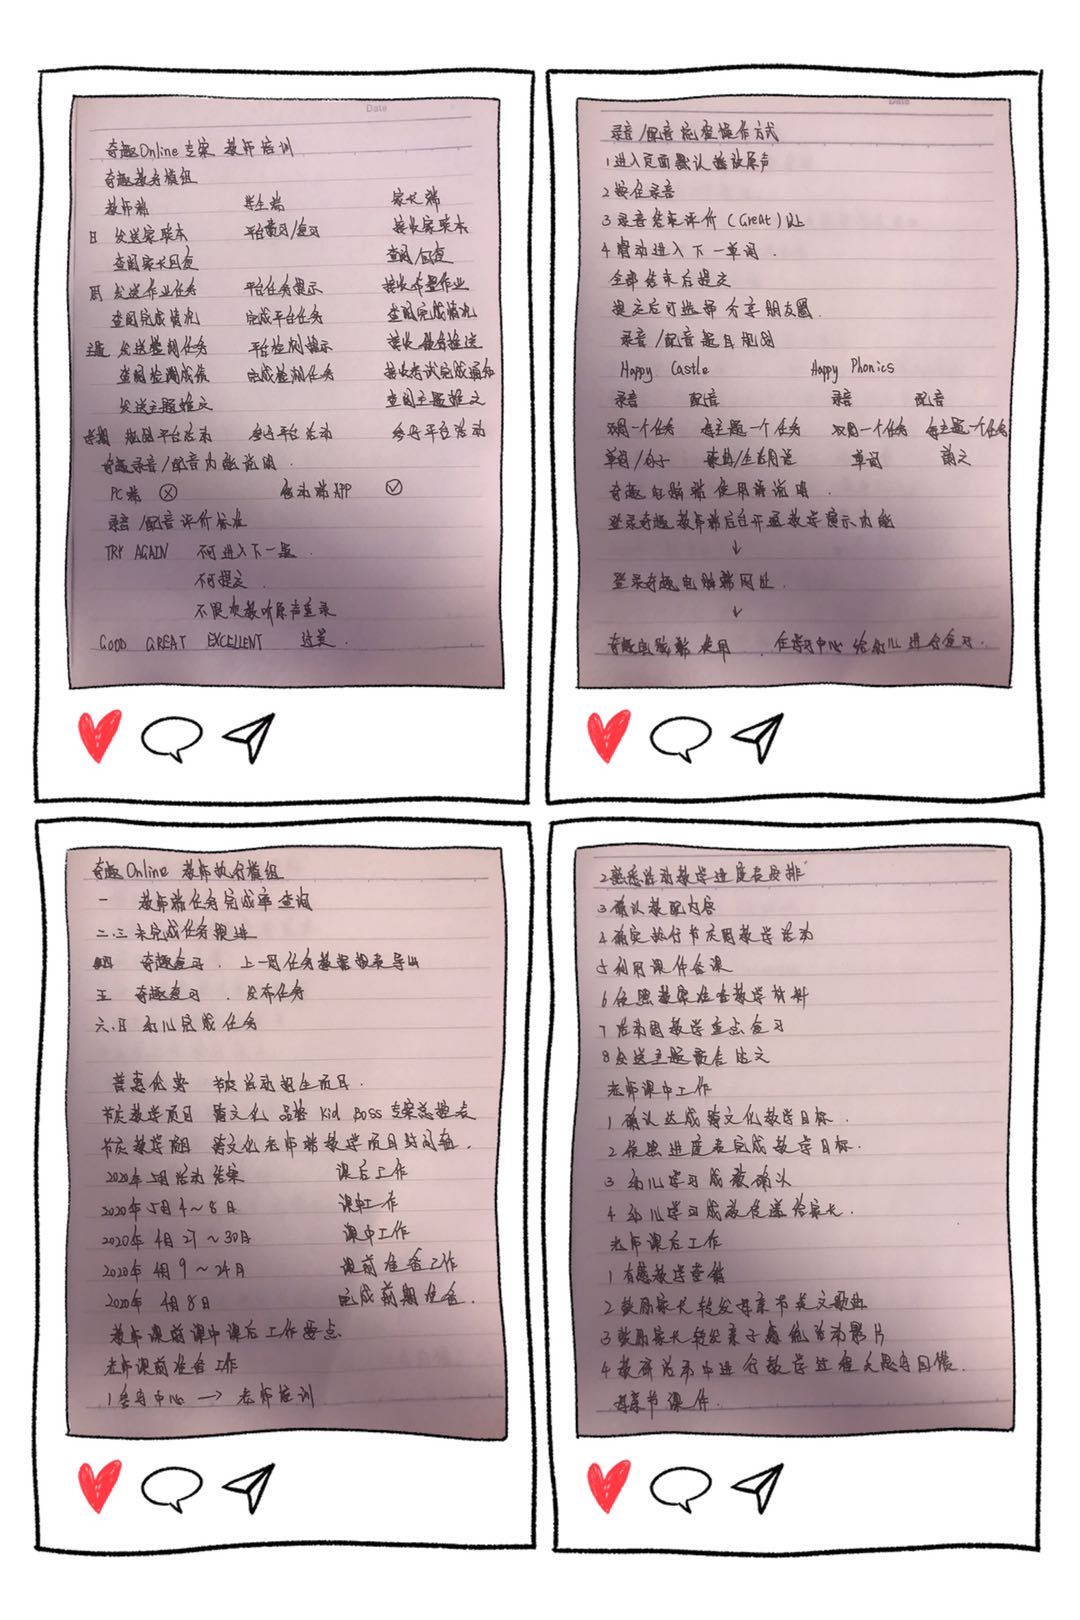 Date
奇趣Online专案 教师培训
奇趣教务模组
教师端 学生端 家长端
日 发送家联本 平台预习/复习 接收家联本
查阅家长回复 查阅/回复
周 发送作业任务 平台任务提示 接收布置作业
查阅完成情况 完成平台任务 查阅完成情况
主题 发送检测任务 平台检测提示 接收任务推送
查阅检测成绩 完成检测任务 接收考试完成通知
发送主题推文 查阅主题推文
学期 规划平台活动 参与平台活动 参与平台活动
奇趣录音/配音功能说明.
PC端 移动端APP
录音/配音评价标准
TRY AGAIN 不可进入下一题.
不可提交.
不限次数听原声重录
GOOD GREAT EXCELLENT 过关.
Date
录音/配音检查操作方式
1 进入页面默认播放原声
2 按住录音
3 录音结束评价(Great)以上
4 滑动进入下一单词.
全部结束后提交
提交后可选择分享朋友圈.
录音/配音题目规划
Happy Castle Happy Phonics
录音 配音 录音 配音
双周一个任务 每主题一个任务 双周一个任务 每主题一个任务
单词/句子 歌曲/生活用语 单词 韵文
奇趣电脑端使用请说明.
登录奇趣教师端后台开通教学演示功能
↓
登录奇趣电脑端网址.
↓
奇趣电脑端使用 . 在学习中心给幼儿进行复习.
奇趣Online 教师执行模组
一 教师端任务完成率查询
二.三 未完成任务跟进
四 奇趣复习. 上一周任务数据报表导出
五 奇趣复习 . 发布任务
六.日 幼儿完成任务
普惠优势 节庆活动招生项目.
节庆教学项目 跨文化 品格 Kid Boss 专案总控表
节庆教学周 跨文化老师端教学项目时间轴.
2020年5月活动结束 课后工作
2020年5月4~8日 课中工作
2020年4月27~30日 课中工作
2020年4月9~24日 课前准备工作
2020年 4月8日 完成前期准备.
教师课前课中课后工作要点
老师课前准备工作
1 参与中心 → 老师培训
2 熟悉活动教学进度表安排
3 确认教配内容
4 确定执行节庆周教学活动
5 利用课件备课
6 依照教案准备教学材料
7 活动周教学重点复习
8 发送主题预告贴文
老师课中工作
1 确认达成跨文化教学目标.
2 依照进度表完成教学目标.
3 幼儿学习成效确认
4 幼儿学习成效传递给家长.
老师课后工作
1 有感教学营销
2 鼓励家长转发母亲节英文歌曲
3 鼓励家长转发亲子感恩活动影片
4 教研活动中进行教学过程反思与回馈.
母亲节课件.